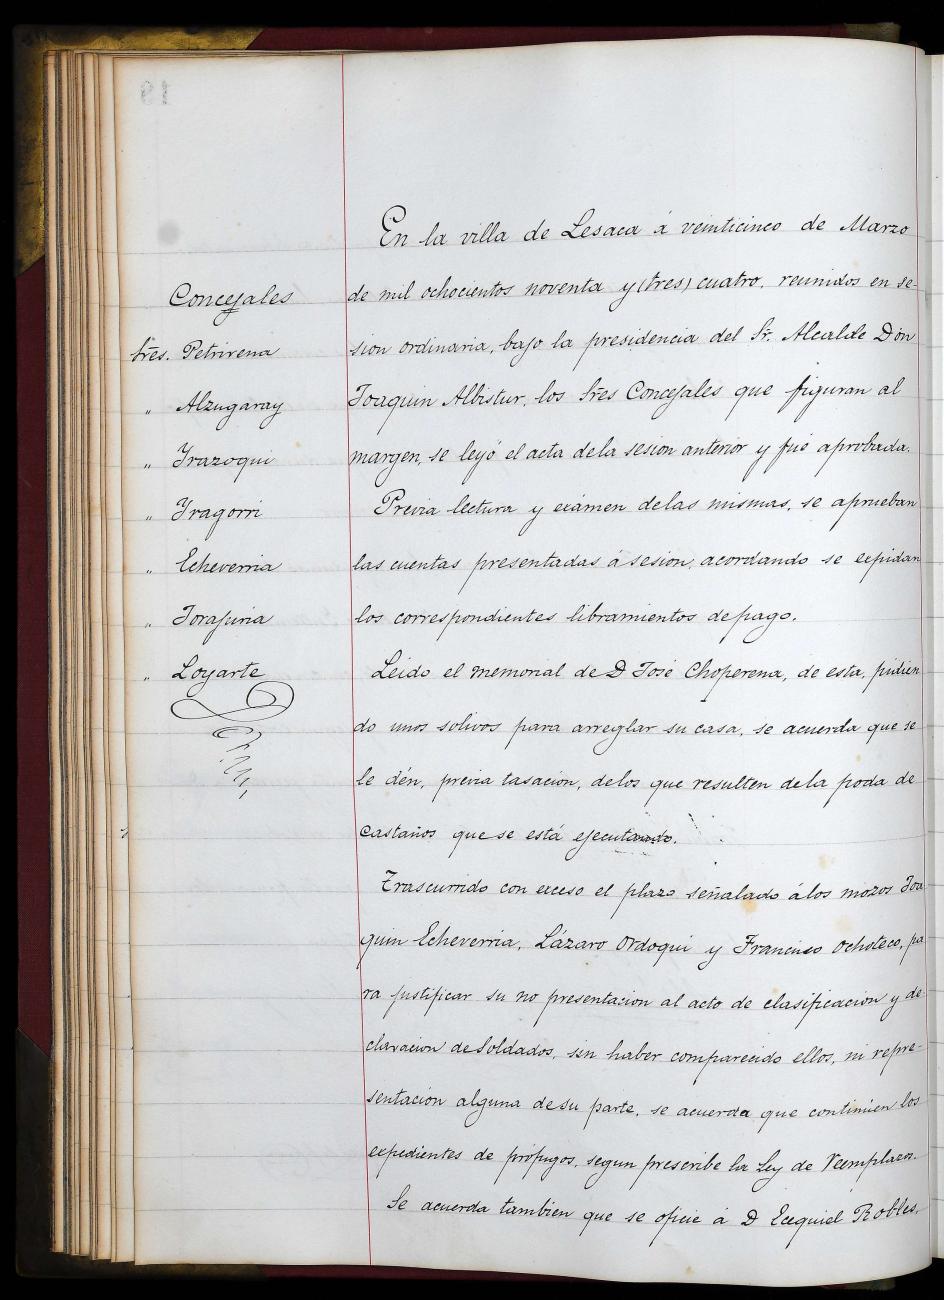 Concejales
Sres. Petrirena
" Alzugaray
" Yrazoqui
" Yragorri
" Echeverria
" Torajuria
" Loyarte
En la villa de Lesaca á veinticinco de Marzo
de mil ochocientos noventa y (tres) cuatro, reunidos en se-
sion ordinaria, bajo la presidencia del Sr. Alcalde Don
Joaquin Albistur, los Sres Concejales que figuran al
margen, se leyó el acta de la sesion anterior y fué aprobada.
Previa lectura y exámen de las mismas, se aprueban
las cuentas presentadas á sesion, acordando se expidan
los correspondientes libramientos de pago.
Leido el memorial de D José Choperena, de esta, pidien
do unos solivos para arreglar su casa, se acuerda que se
le dén, previa tasacion, de los que resulten de la poda de
castaños que se está ejecutando.
Trascurrido con exceso el plazo señalado á los mozos Joa
quin Echeverria, Lázaro Ordoqui y Francisco Ochoteco, pa
ra justificar su no presentacion al acto de clasificacion y de-
claracion de Soldados, sin haber comparecido ellos, ni repre-
sentacion alguna de su parte, se acuerda que continúen los
expedientes de prófugos, segun prescribe la Ley de Reemplazos.
Se acuerda tambien que se oficie á D Ecequiel Robles,